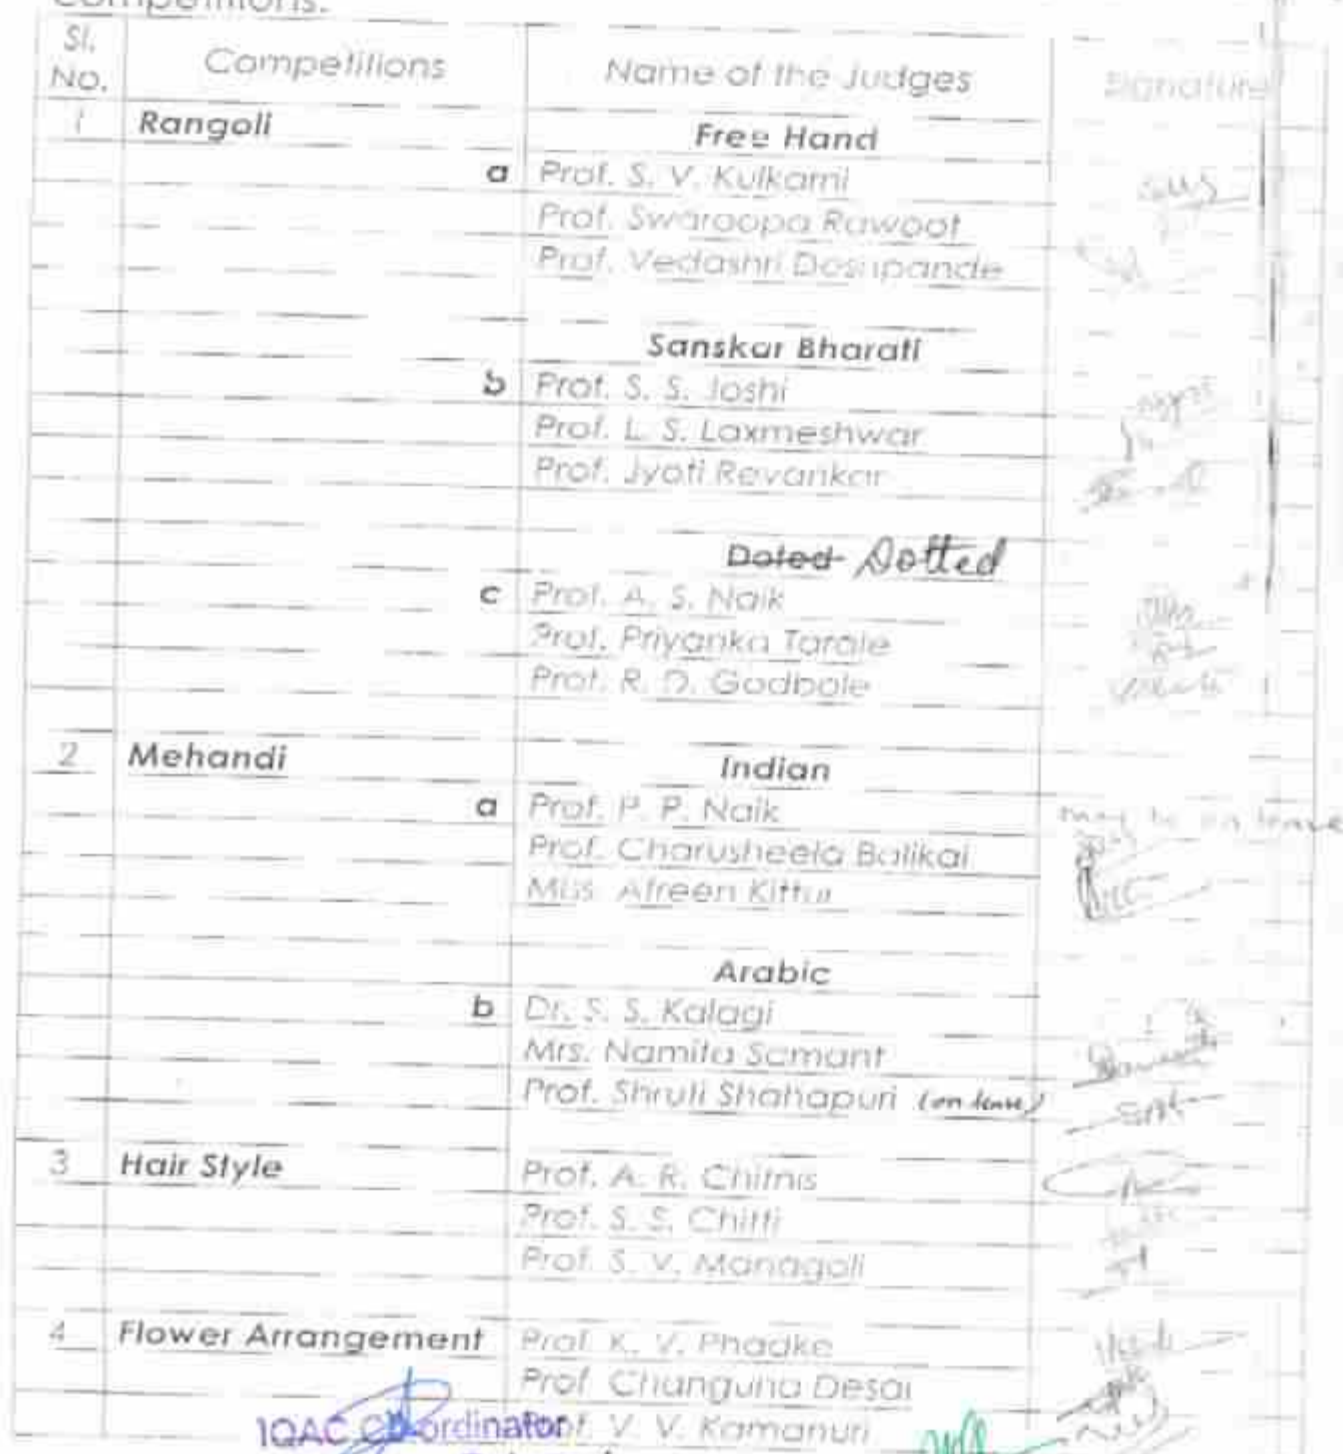 Competitions.
Sl. No. Competitions Name of the Judges Signature
1 Rangoli Free Hand
a Prof. S. V. Kulkarni
Prof. Swaroopa Rawoot
Prof. Vedashri Deshpande
Sanskar Bharati
b Prof. S. S. Joshi
Prof. L. S. Laxmeshwar
Prof. Jyoti Revankar
Doted Dotted
c Prof. A. S. Naik
Prof. Priyanka Tarale
Prof. R. D. Godbole
2 Mehandi Indian
a Prof. P. P. Naik may be on leave
Prof. Charusheela Balikai
Miss Afreen Kittur
Arabic
b Dr. S. S. Kalagi
Mrs. Namita Samant
Prof. Shruti Shahapuri (on leave)
3 Hair Style Prof. A. R. Chitnis
Prof. S. S. Chitti
Prof. S. V. Managoli
4 Flower Arrangement Prof. K. V. Phadke
Prof. Changuna Desai
IQAC Co-ordinator Prof. V. V. Kamanuri